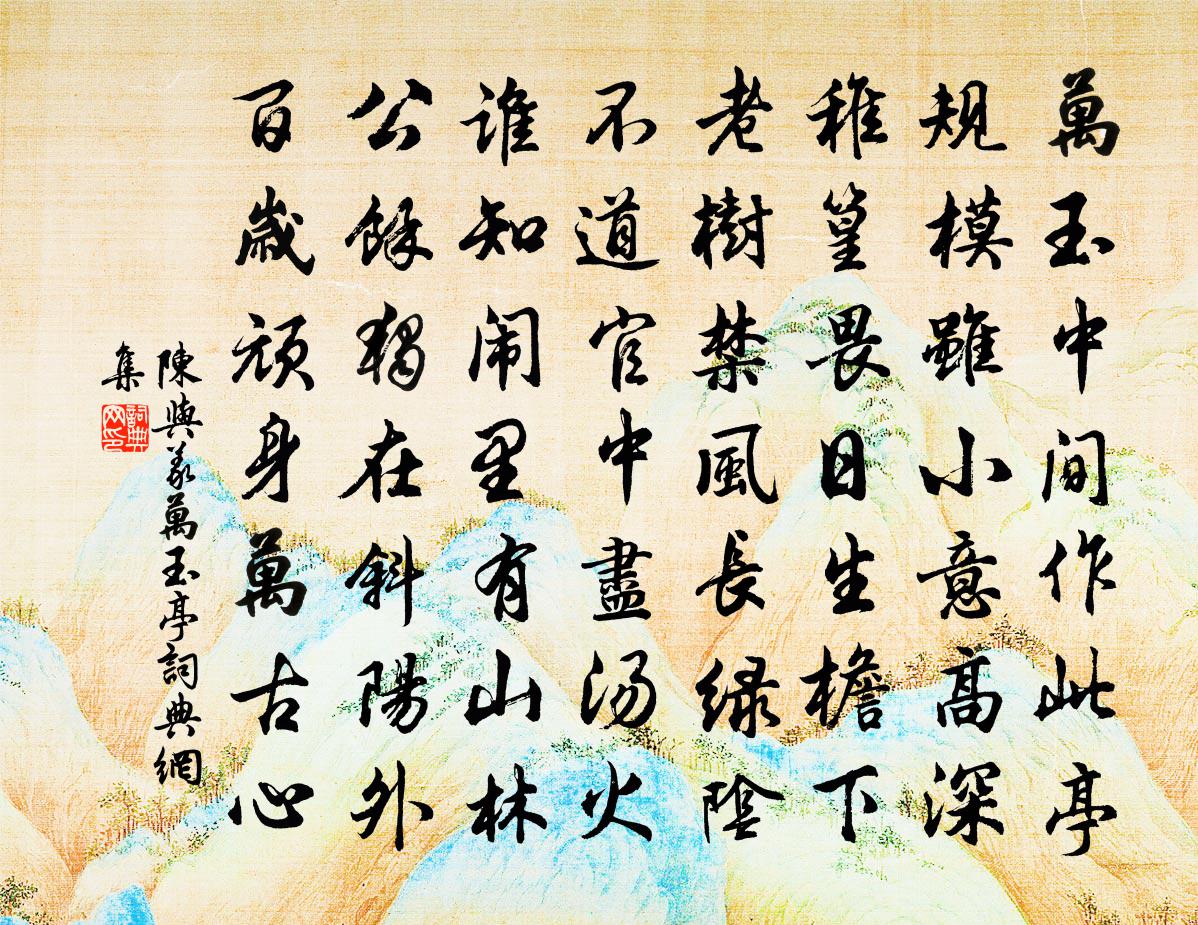 萬玉中间作此亭
規模雖小意高深
稚篁畏日生檐下
老樹禁風長緑陰
不道官中盡汤火
谁知闹里有山林
公餘獨在斜陽外
百歲頑身萬古心
陳與義萬玉亭詞典網
集
詞典
网印